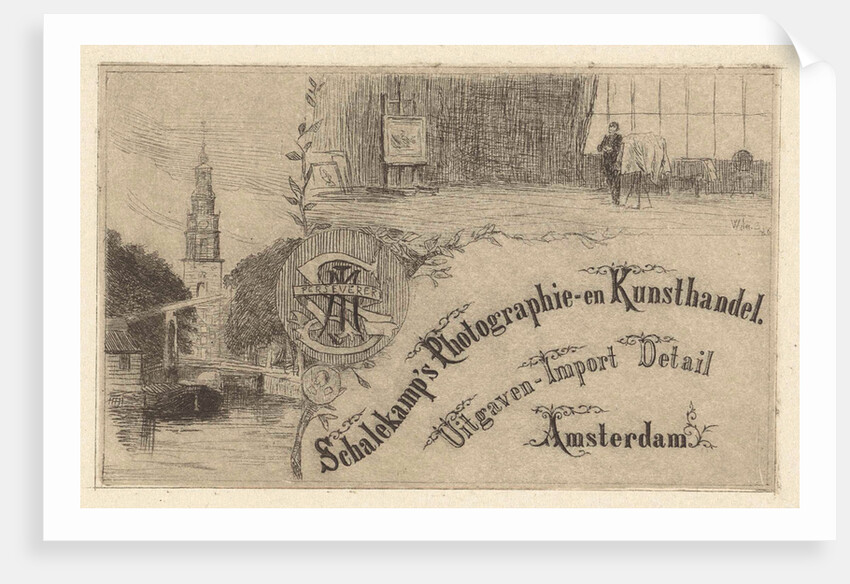 PERSEVERE
Schalekamp's Photographie-en Kunsthandel.
Uitgaven-Import Detail
Amsterdam